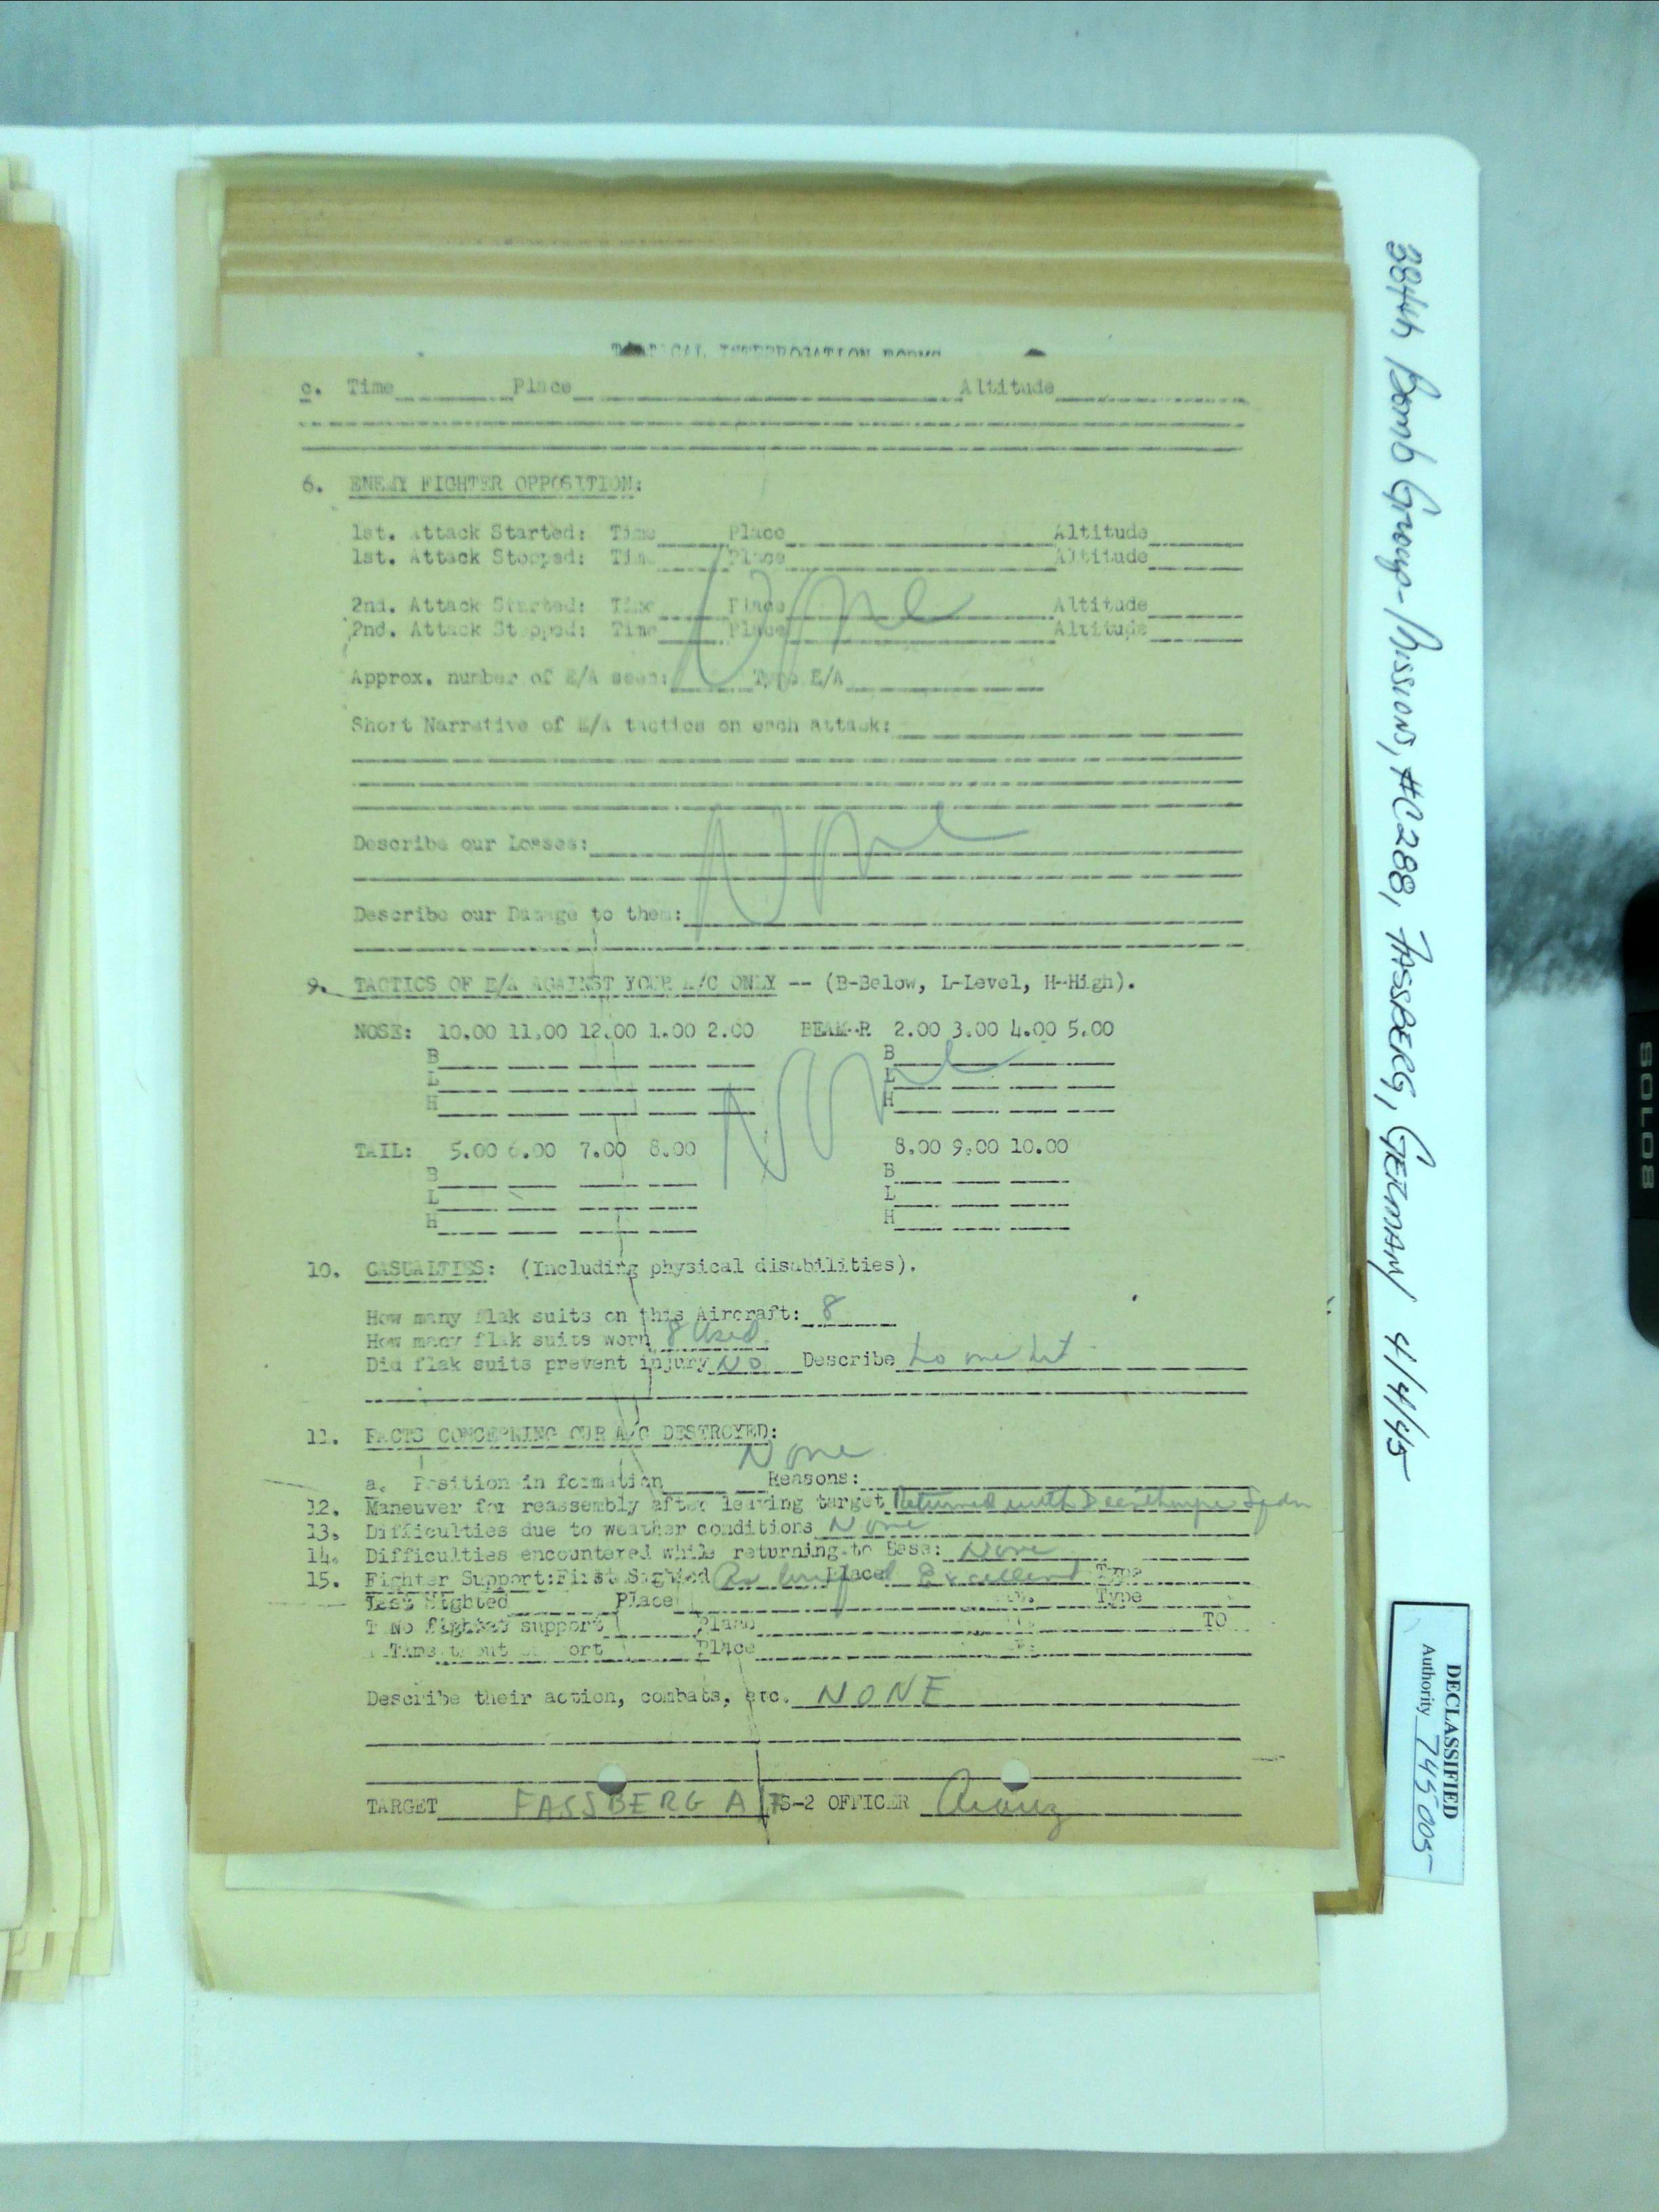 TACTICAL INTERROGATION FORMS
c. Time Place Altitude
6. ENEMY FIGHTER OPPOSITION:
1st. Attack Started: Time Place Altitude
1st. Attack Stopped: Time Place Altitude
None
2nd. Attack Started: Time Place Altitude
2nd. Attack Stopped: Time Place Altitude
Approx. number of E/A seen: Type E/A
Short Narrative of E/A tactics on each attack:
None
Describe our Losses:
Describe our Damage to them:
9. TACTICS OF E/A AGAINST YOUR A/C ONLY -- (B-Below, L-Level, H-High).
NOSE: 10.00 11.00 12.00 1.00 2.00 BEAM-R 2.00 3.00 4.00 5.00
B B
L L
H H
None
TAIL: 5.00 6.00 7.00 8.00 8.00 9.00 10.00
B B
L L
H H
10. CASUALTIES: (Including physical disabilities).
How many flak suits on this Aircraft: 8
How many flak suits worn 8 Used
Did flak suits prevent injury No Describe
11. FACTS CONCERNING OUR A/C DESTROYED:
None
a. Position in formation Reasons:
12. Maneuver for reassembly after leaving target Returned with
13. Difficulties due to weather conditions None
14. Difficulties encountered while returning to Base: None
15. Fighter Support: First Sighted As briefed Place Excellent Type
Last Sighted Place Type
No fighter support Place TO
Place
Describe their action, combats, etc. NONE
TARGET FASSBERG A/F S-2 OFFICER
384th Bomb Group-Missions, #C288, FASSBERG, GERMANY 4/4/45
DECLASSIFIED
Authority 745005
SOLO8